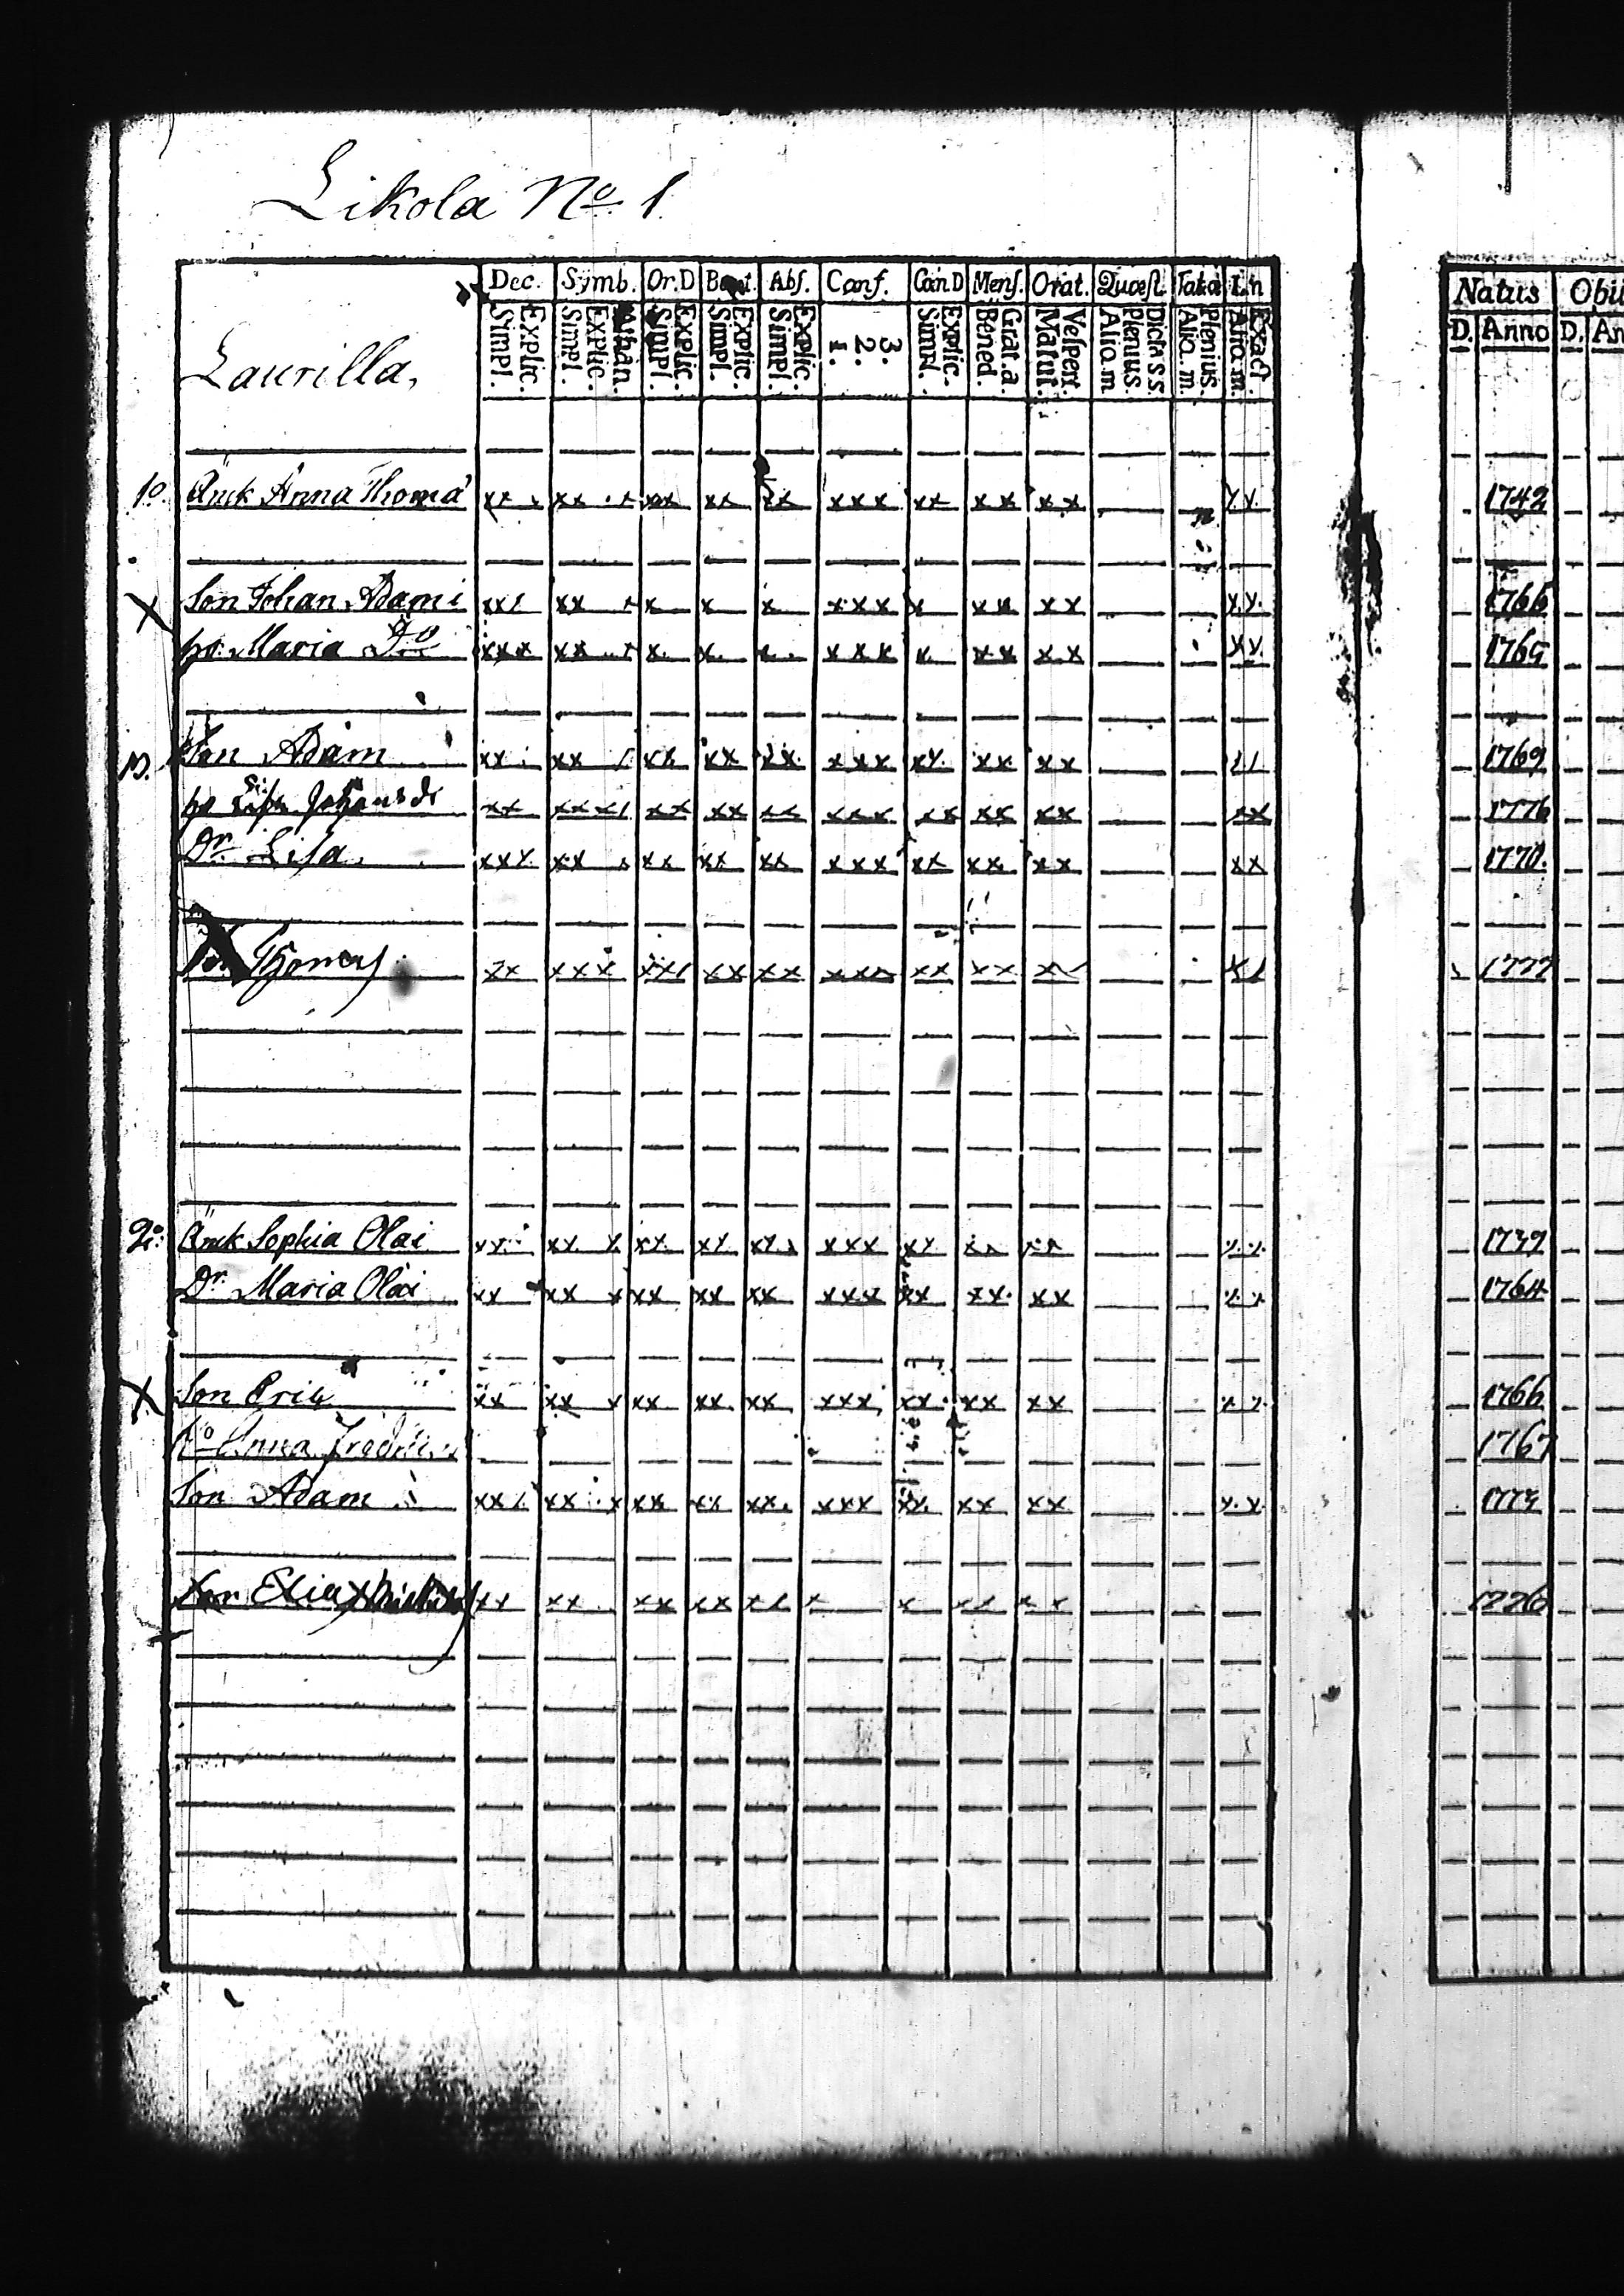 Likola No 1
Dec. Symb. Or.D Bapt. Abs. Conf. Cœn D Mens. Orat. Quæst. In
Explic. Simpl. Athan. Explic. Simpl. Explic. Simpl. Explic. Simpl. Explic. Simpl. 3. 2. 1. Explic. Simpl. Grat. a. Bened. Vespert. Matut. Dicta s s. Plenius. Aliq. m. Plenius. Aliq. m. Exact. Aliq. m.
Natus
D. Anno D.
Laurilla,
1o. Änk Anna Thoma xx x xx x xx xx xx xxx xx xx xx xx 1742
X Son Johan Adami xxx xx x x x x xxx x xx xx xx 1766
ho Maria Do xxx xx x x x x xxx x xx xx xx 1765
Son Adam xx xx xx xx xx xxx xx xx xx 1769
ho xx xxxx xx xx xx xxx xx xx xx xx 1776
Dr Lisa xxx xx x xx xx xx xxx xx xx xx xx 1770.
Thomas xx xxx xxx xx xx xxx xx xx xx 1777
2o: Änk Sophia Olai xx xx x xx xx xx xxx xx xx xx xx 1739
Dr Maria Olai xx xx x xx xx xx xxx xx xx xx xx 1764
X Son Eric xx xx x xx xx xx xxx xx xx xx xx 1766
ho Anna 1767
Son Adam xxx xx x xx xx xx xxx xx xx xx xx 1774
Son Elias xx xx xx xx xx x x xx xx 1776